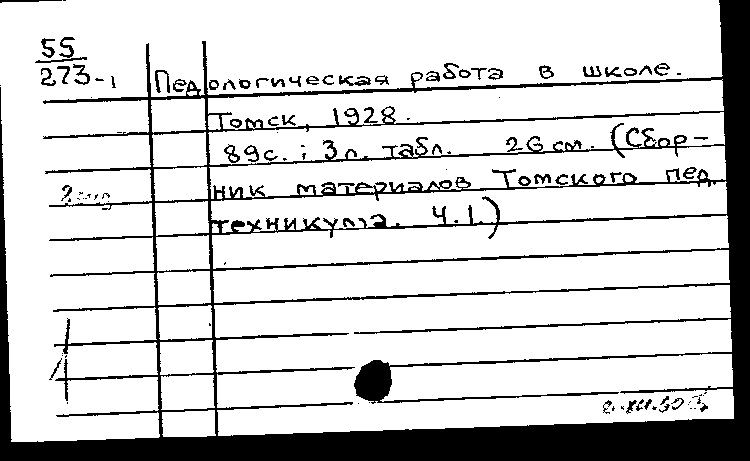 55
273-1 Педологическая работа в школе.
Томск, 1928.
89с.; 3л. табл. 26 см. (Сбор-
ник материалов Томского пед.
техникума. Ч.1.)